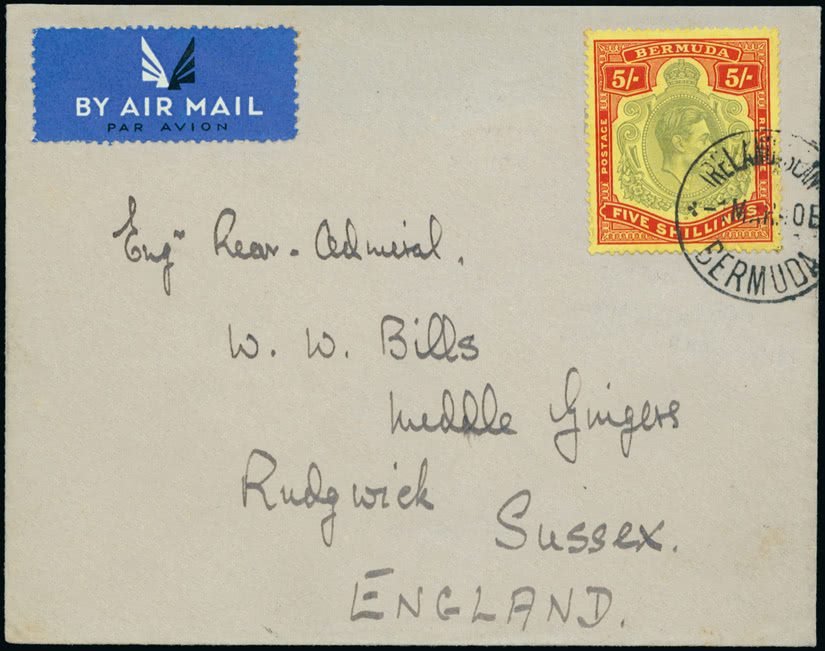 BY AIR MAIL
PAR AVION
BERMUDA
5/- 5/-
POSTAGE
FIVE SHILLINGS
IRELAND ISLAND
BERMUDA
Engr Rear-Admiral.
W. W. Bills
Meddle Gingers
Rudgwick
Sussex.
ENGLAND.